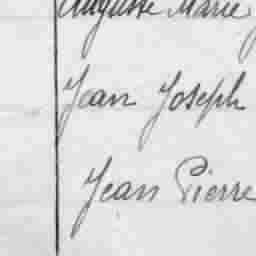 Auguste Marie
Jean Joseph
Jean Pierre